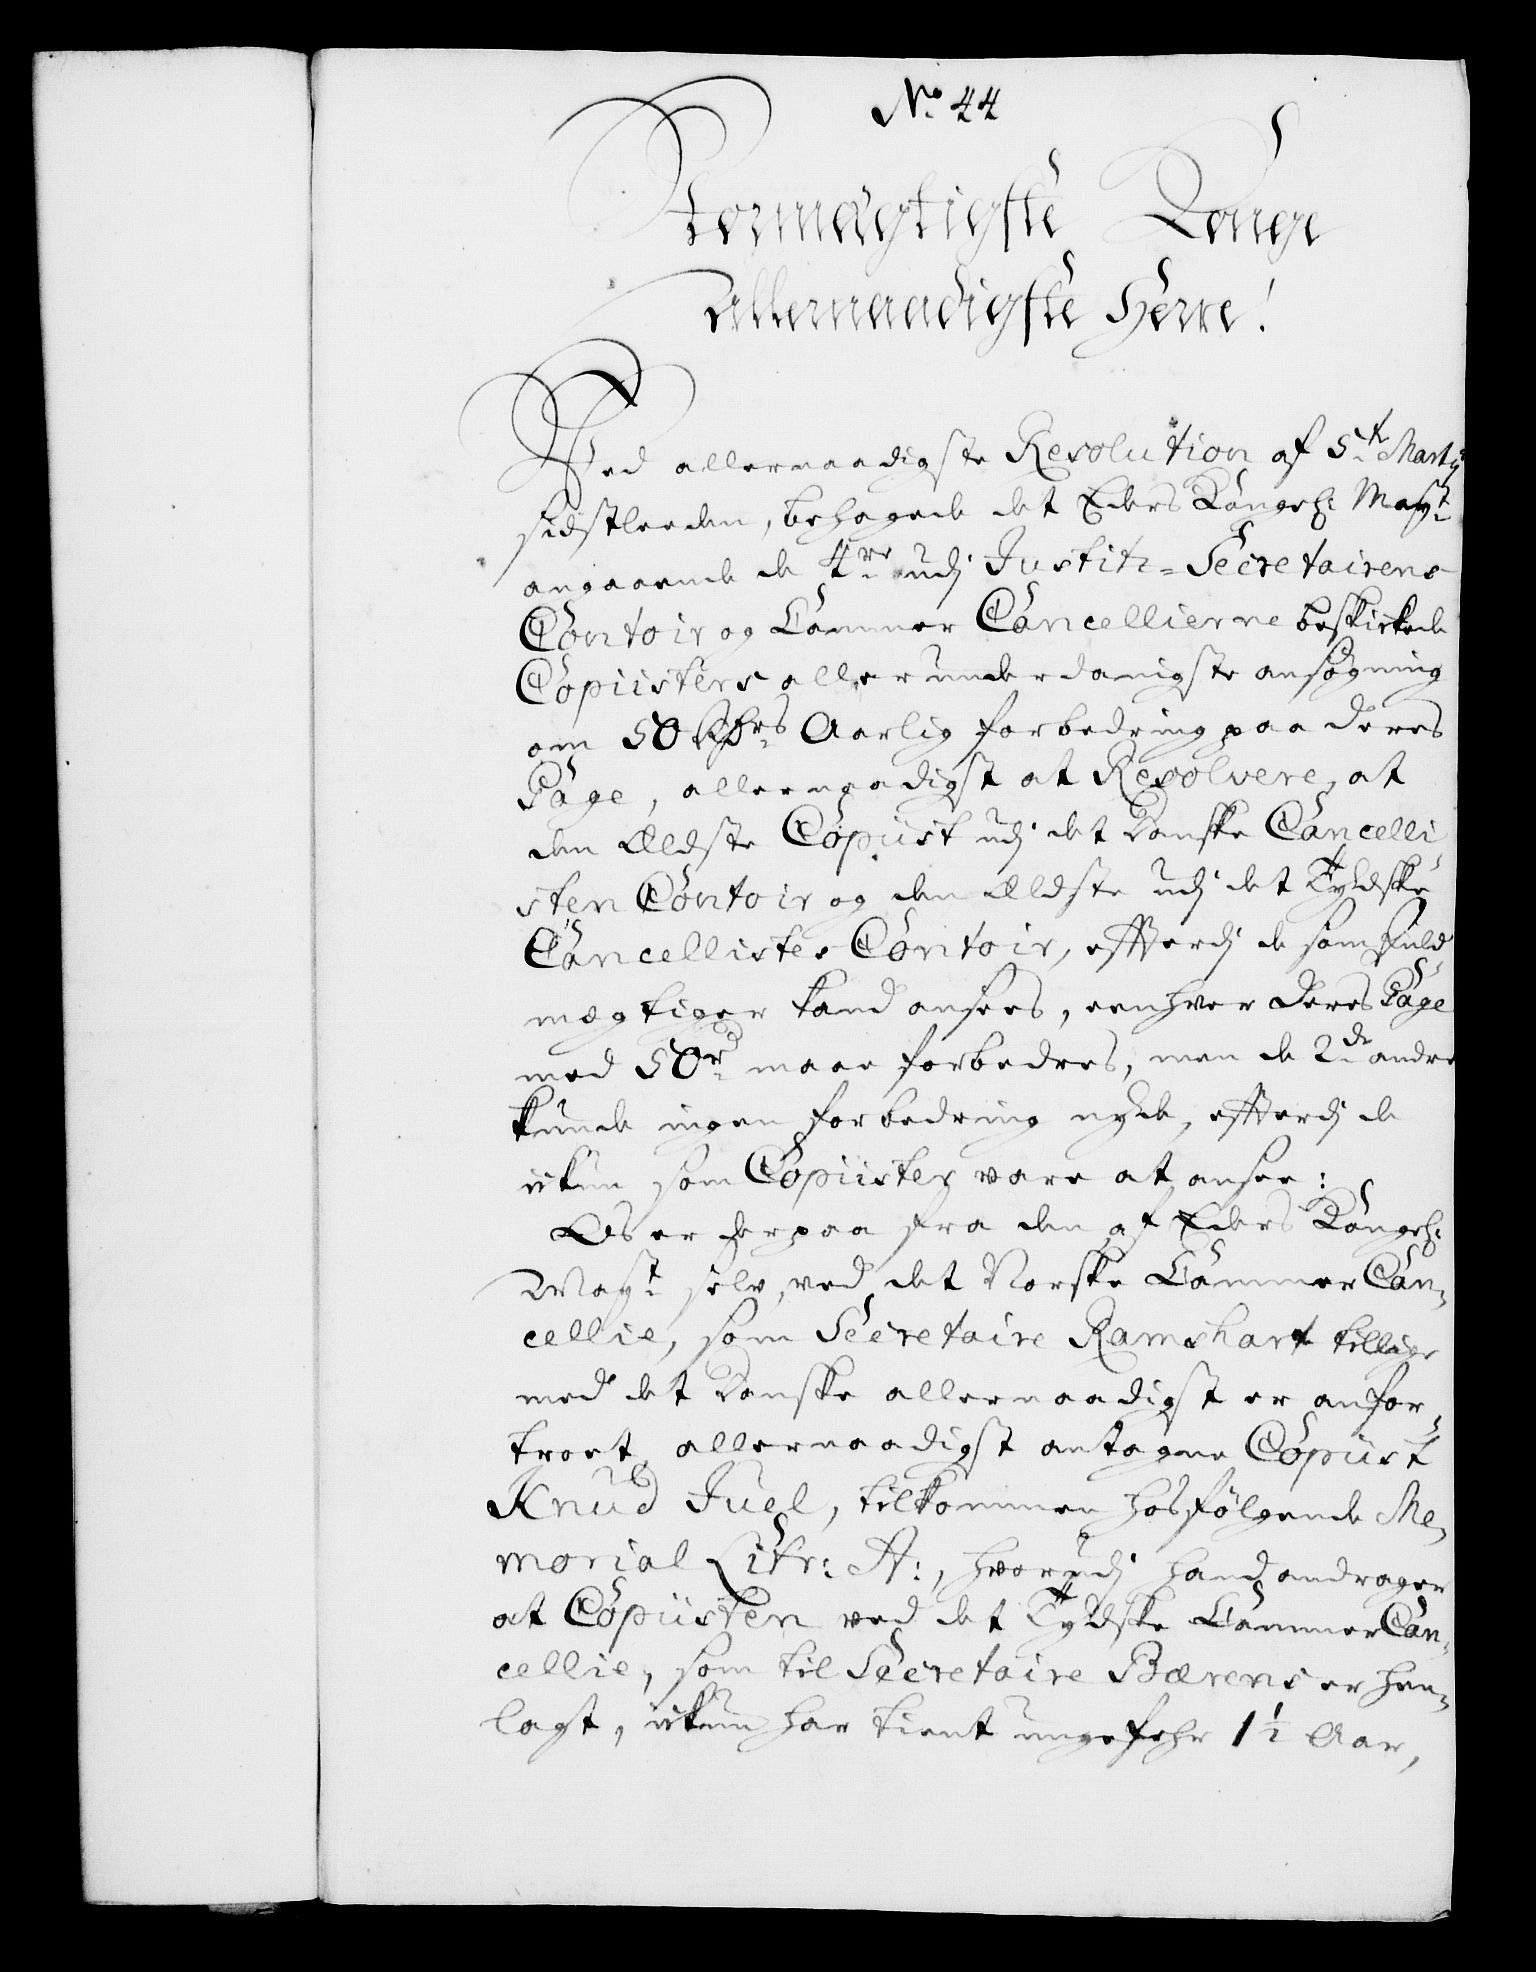 No. 44
Stormægtigste Konge
Allernaadigste Herre!
Ved allernaadigste Resolution af 5te Marty
sidstleeden, behagede det Eders Kongel: Mayt
angaaende de 4re udj Justitz-Secretairens
Contoir og Cammer Cancellierne beskickede
Copiisters allerunderdanigste ansøgning
om 50 Rdrs Aarlig forbedring paa deres
Gage, allernaadigst at Resolvere, at
den Eldste Copiist udj det Danske Cancelli
sten Contoir og den Eldste udj det Tydske
Cancellistes Contoir, efftterdj de som fuld
mægtiger kand ansees, eenhver deres Gage
med 50rd maae forbedres, men de 2de andre
kunde ingen forbedring nyde, effterdj de
ickun som Copiister vare at ansee:
Os er derpaa fra den af Eders Kongel:
Mayt selv, ved det Norske Cammer Can-
cellie, som Secretaire Ramshart tillige
med det Danske allernaadigst er anfor-
troet, allernaadigst antagne Copiist
Knud Juel, tilkommen hosfølgende Me-
morial Litr: A:, hvorudj hand andrager
at Copiisten ved det Tydske Cammer Can-
cellie, som til Secretaire Bærens er hen-
lagt, ickun har tient ungefehr 1½ Aar,